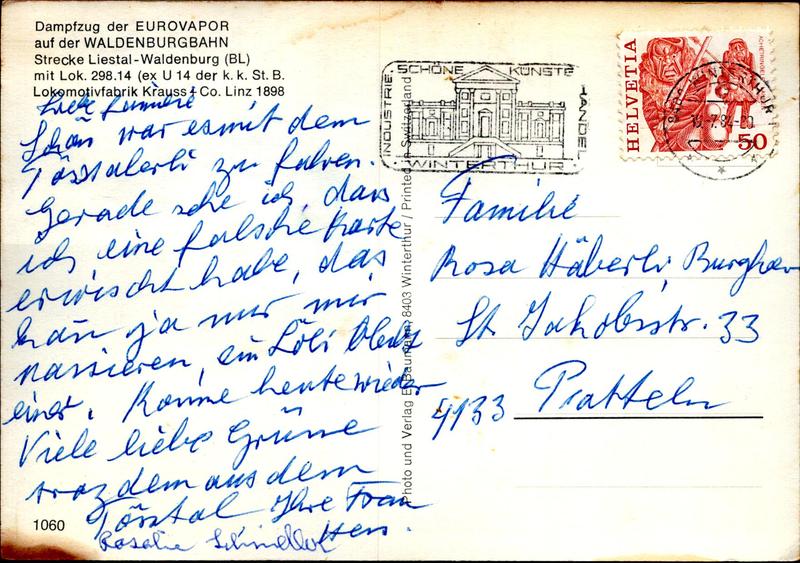 Dampfzug der EUROVAPOR
auf der WALDENBURGBAHN
Strecke Liestal-Waldenburg (BL)
mit Lok. 298.14 (ex U 14 der k. k. St. B.
Lokomotivfabrik Krauss + Co. Linz 1898
Liebe Familie
Schön war es mit dem
Tösstalerli zu fahren.
Gerade sehe ich, dass
ich eine falsche Karte
erwischt habe, das
kan ja nur mir
passieren, ein Löli
einer. Komme heute wieder
Viele liebe Grüsse
trozdem aus dem
Tösstal Ihre Frau
Rosalie
1060
Photo und Verlag E. Baumann, 8403 Winterthur / Printed in Switzerland
INDUSTRIE SCHÖNE KÜNSTE HANDEL
WINTERTHUR
HELVETIA
50
WINTERTHUR
Familie
Rosa Häberli
St. Jakobstr. 33
4133 Pratteln